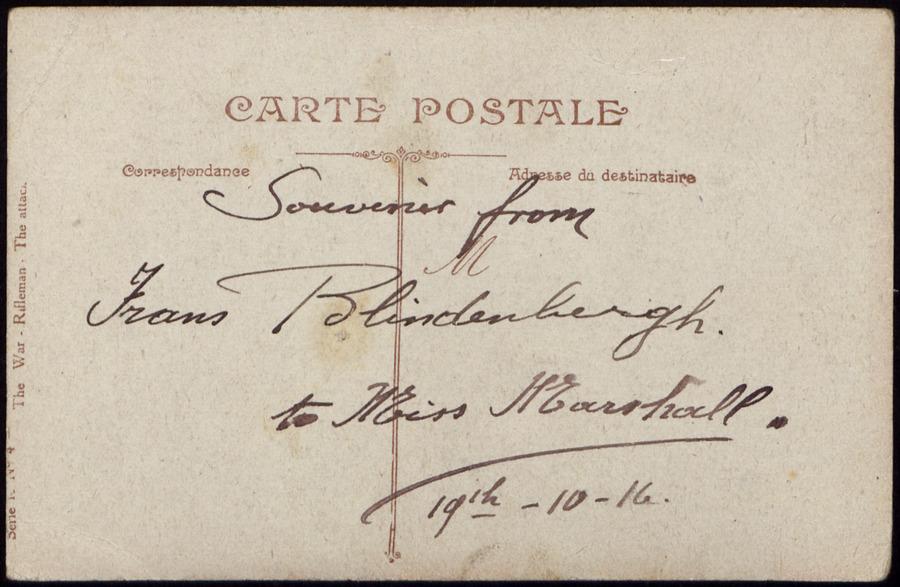 CARTE POSTALE
Correspondance
Adresse du destinataire
Souvenir from
M
Frans Blindenbergh.
to Miss Marshall.
19th - 10 - 16.
The War - Rifleman - The attack.
Serie N° 4